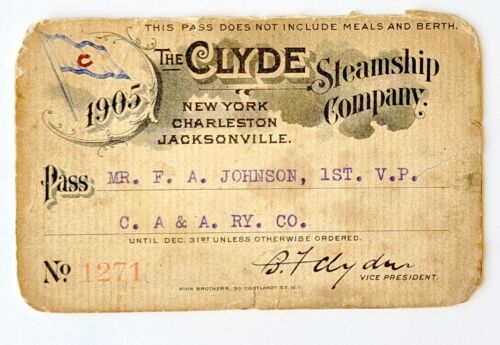 THIS PASS DOES NOT INCLUDE MEALS AND BERTH.
C
1905
THE CLYDE Steamship Company.
NEW YORK
CHARLESTON
JACKSONVILLE.
Pass MR. F. A. JOHNSON, 1ST. V.P.
C. A & A. RY. CO.
UNTIL DEC. 31ST UNLESS OTHERWISE ORDERED.
No 1271
VICE PRESIDENT.
BROTHERS, 30 CORTLANDT ST. N.Y.